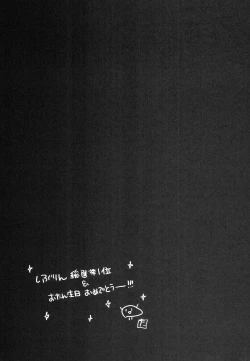 しぶりん 総選挙1位
&
おたん生日 おめでとうー!!!